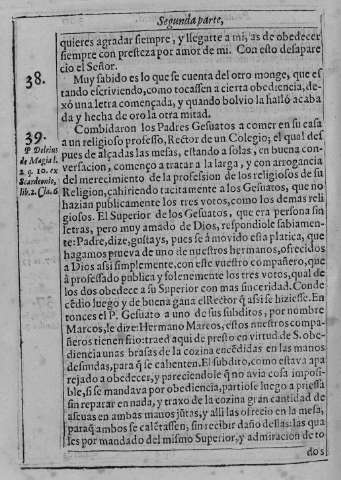 Segunda parte,
quieres agradar siempre, y llegarte a mi, as de obedecer
siempre con presteza por amor de mi. Con esto desapare
cio el Señor.
38.
Muy sabido es lo que se cuenta del otro monge, que es
tando escriviendo, como tocassen a cierta obediencia, de-
xó una letra començada, y quando bolvio la halló acaba
da y hecha de oro la otra mitad.
39.
P Delrius
de Magia l.
2 q. 10. ex
Scardeonio,
lib. 2. Cla. 6
Combidaron los Padres Gesuatos a comer en su casa
a un religioso professo, Rector de un Colegio; el qual des
pues de alçadas las mesas, estando a solas, en buena con-
versacion, començo a tratar a la larga, y con arrogancia
del merecimiento de la profession de los religiosos de su
Religion, cahiriendo tacitamente a los Gesuatos, que no
hazian publicamente los tres votos, como los demas reli
giosos. El Superior de los Gesuatos, que era persona sin
letras, pero muy amado de Dios, respondiole sabiamen-
te: Padre, dize, gustays, pues se á movido esta platica, que
hagamos prueva de uno de nuestros hermanos, ofrecidos
a Dios assi simplemente, con este vuestro compañero, que
á professado publica y solenemente los tres votos, qual de
los dos obedece a su Superior con mas sinceridad. Conde
cēdio luego y de buena gana el Rector q̃ assi se hiziesse. En
tonces el P. Gesuato a uno de sus subditos, por nombre
Marcos, le dize: Hermano Marcos, estos nuestros compa-
ñeros tienen frio: traed aqui de presto en virtud de S. obe-
diencia unas brasas de la cozina encēdidas en las manos
desnudas, para q̃ se calienten. El subdito, como estava apa
rejado a obedecer, y pareciendole q̃ no avia cosa imposi-
ble, si se mandava por obediencia, partiose luego a priessa
sin reparar en nada, y traxo de la cozina gran cantidad de
ascuas en ambas manos jūtas, y alli las ofrecio en la mesa,
paraq̃ ambos se calētassen, sin recibir daño dellas: las qua
les por mandado del mismo Superior, y admiracion de to
dos